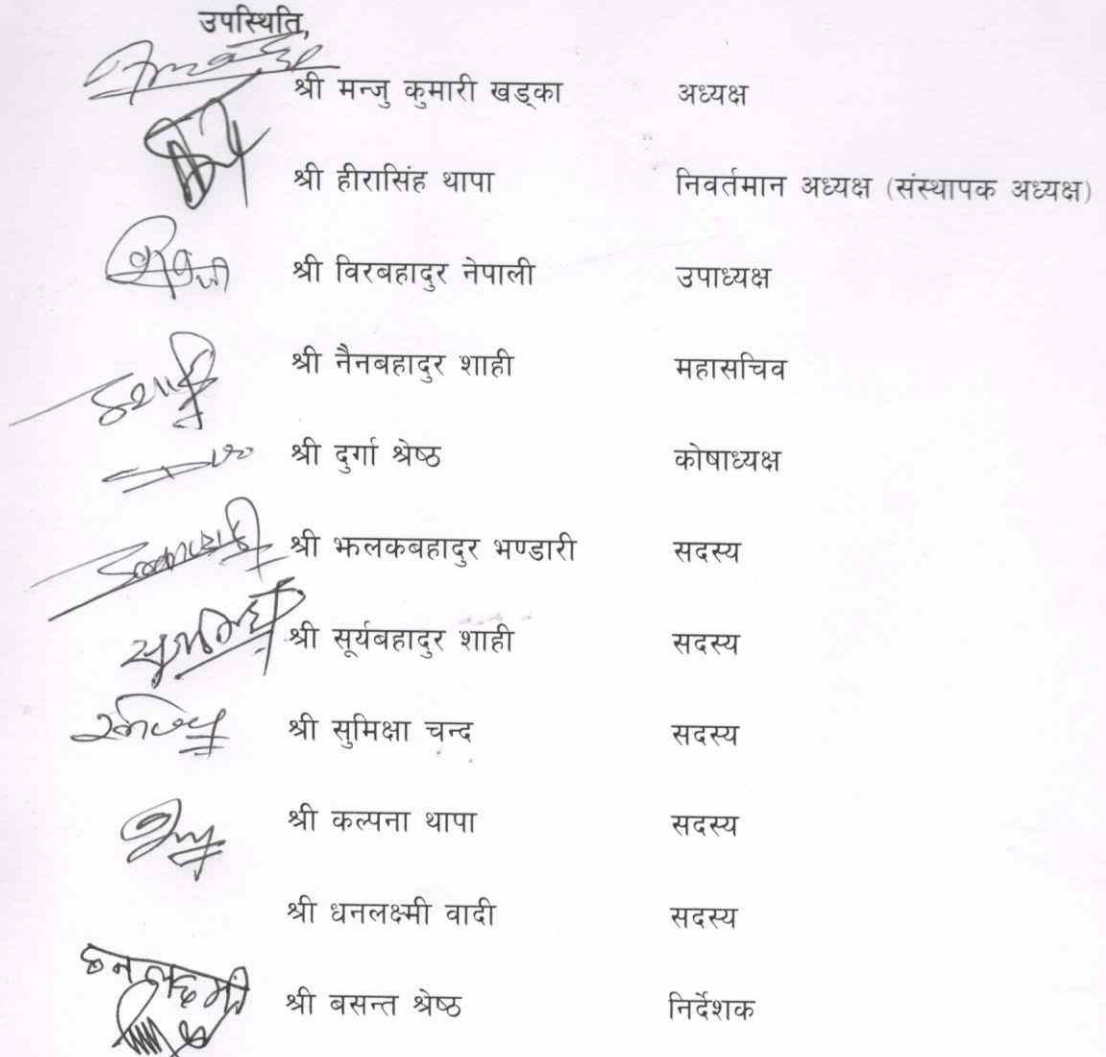 उपस्थिति,
श्री मन्जु कुमारी खड्का अध्यक्ष
श्री हीरासिंह थापा निवर्तमान अध्यक्ष (संस्थापक अध्यक्ष)
श्री विरबहादुर नेपाली उपाध्यक्ष
श्री नैनबहादुर शाही महासचिव
श्री दुर्गा श्रेष्ठ कोषाध्यक्ष
श्री झलकबहादुर भण्डारी सदस्य
श्री सूर्यबहादुर शाही सदस्य
श्री सुमिक्षा चन्द सदस्य
श्री कल्पना थापा सदस्य
श्री धनलक्ष्मी वादी सदस्य
श्री बसन्त श्रेष्ठ निर्देशक